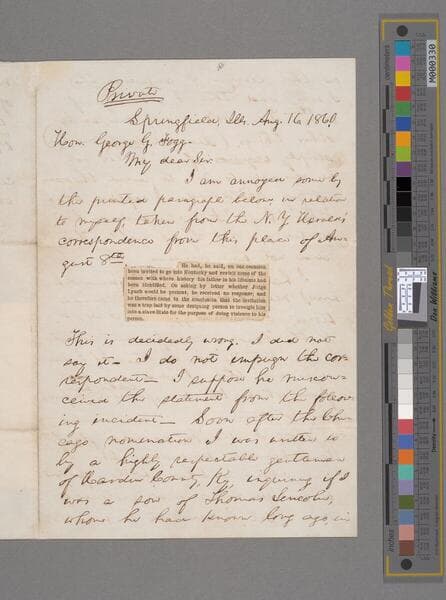 Private
Springfield, Ills. Aug. 16, 1860
Hon. George G. Fogg—
My dear Sir:
I am annoyed some by
the printed paragraph below, in relation
to myself, taken from the N.Y. Herald's
correspondence from this place of Au-
gust 8th
He had, he said, on one occasion
been invited to go into Kentucky and revisit some of the
scenes with whose history his father in his lifetime had
been identified. On asking by letter whether Judge
Lynch would be present, he received no response; and
he therefore came to the conclusion that the invitation
was a trap laid by some designing person to inveigle him
into a slave State for the purpose of doing violence to his
person.
This is decidedly wrong. I did not
say it— I do not impugn the cor-
respondent— I suppose he miscon-
ceived the statement from the follow-
ing incident— Soon after the Chi-
cago nomination I was written to
by a highly respectable gentleman
of Hardin County, Ky, inquiring if I
was a son of Thomas Lincoln,
whom he had known long ago, in
M000330
centimeters
inches
Golden Thread